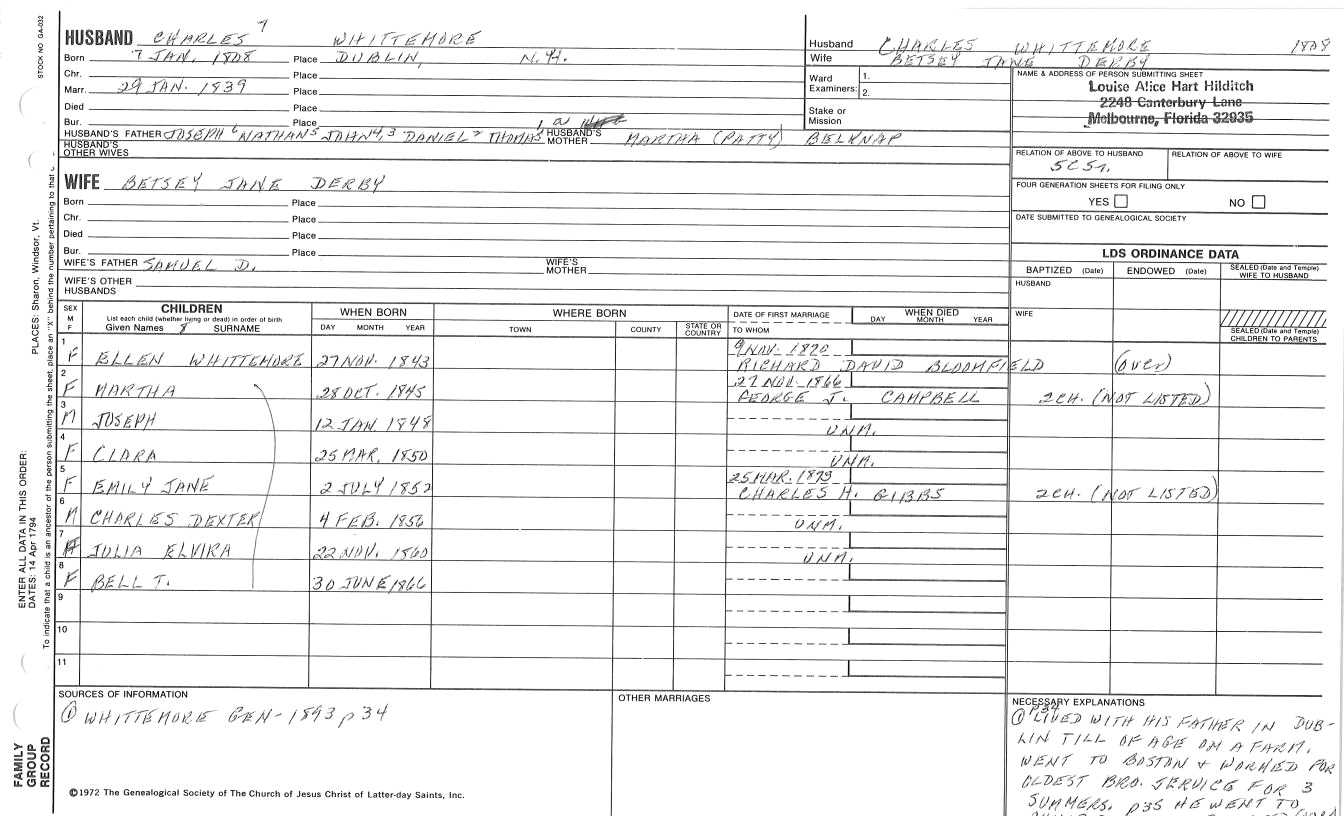 STOCK NO GA-032
HUSBAND CHARLES 7 WHITTEMORE
Born 7 JAN. 1808 Place DUBLIN, N.H.
Chr. Place
Marr. 29 JAN. 1839 Place
Died Place
Bur. Place
HUSBAND'S FATHER JOSEPH 6 NATHAN 5 JOHN 4,3 DANIEL 2 THOMAS 1 HUSBAND'S MOTHER MARTHA (PATTY) BELKNAP
HUSBAND'S OTHER WIVES
Husband CHARLES WHITTEMORE 1808
Wife BETSEY JANE DERBY
Ward Examiners: 1.
2.
Stake or Mission
NAME & ADDRESS OF PERSON SUBMITTING SHEET
Louise Alice Hart Hilditch
2248 Canterbury Lane
Melbourne, Florida 32935
RELATION OF ABOVE TO HUSBAND RELATION OF ABOVE TO WIFE
FOUR GENERATION SHEETS FOR FILING ONLY
YES NO
DATE SUBMITTED TO GENEALOGICAL SOCIETY
WIFE BETSEY JANE DERBY
Born Place
Chr. Place
Died Place
Bur. Place
WIFE'S FATHER SAMUEL D. WIFE'S MOTHER
WIFE'S OTHER HUSBANDS
LDS ORDINANCE DATA
BAPTIZED (Date) ENDOWED (Date) SEALED (Date and Temple) WIFE TO HUSBAND
HUSBAND
WIFE
SEALED (Date and Temple) CHILDREN TO PARENTS
SEX M F
CHILDREN
List each child (whether living or dead) in order of birth
Given Names 8 SURNAME
WHEN BORN
DAY MONTH YEAR
WHERE BORN
TOWN COUNTY STATE OR COUNTRY
DATE OF FIRST MARRIAGE
TO WHOM
WHEN DIED
DAY MONTH YEAR
1 F ELLEN WHITTEMORE 27 NOV. 1843 RICHARD DAVID BLOOMFIELD (over)
2 F MARTHA 28 OCT. 1845 27 NOV. 1866 GEORGE J. CAMPBELL 2 CH. (NOT LISTED)
3 M JOSEPH 12 JAN 1848 UNM.
4 F CLARA 25 MAR. 1850 UNM.
5 F EMILY JANE 2 JULY 1852 25 MAR. CHARLES H. GIBBS 2 CH. (NOT LISTED)
6 M CHARLES DEXTER 4 FEB. 1856 UNM.
7 JULIA ELVIRA 22 NOV. 1860 UNM.
8 F BELL T. 30 JUNE 1866
9
10
11
SOURCES OF INFORMATION
① WHITTEMORE GEN-1893 p 34
OTHER MARRIAGES
NECESSARY EXPLANATIONS
① p34 LIVED WITH HIS FATHER IN DUB-
LIN TILL OF AGE ON A FARM.
WENT TO BOSTON + WORKED FOR
OLDEST BRO. SERVICE FOR 3
SUMMERS. p35 HE WENT TO
©1972 The Genealogical Society of The Church of Jesus Christ of Latter-day Saints, Inc.
FAMILY GROUP RECORD
ENTER ALL DATA IN THIS ORDER:
DATES: 14 Apr 1794
PLACES: Sharon, Windsor, Vt.
To indicate that a child is an ancestor of the person submitting the sheet, place an "X" behind the number pertaining to that